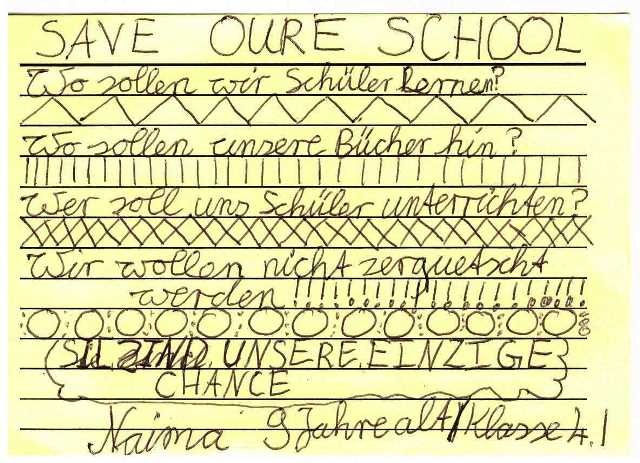 SAVE OURE SCHOOL
Wo sollen wir Schüler Lernen?
Wo sollen unsere Bücher hin?
Wer soll uns Schüler unterrichten?
Wir wollen nicht zerquetscht
werden !!!!!!!!!!!!!!!!!!!!
UNSERE EINZIGE
CHANCE
Naima 9 Jahre alt/Klasse 4.1